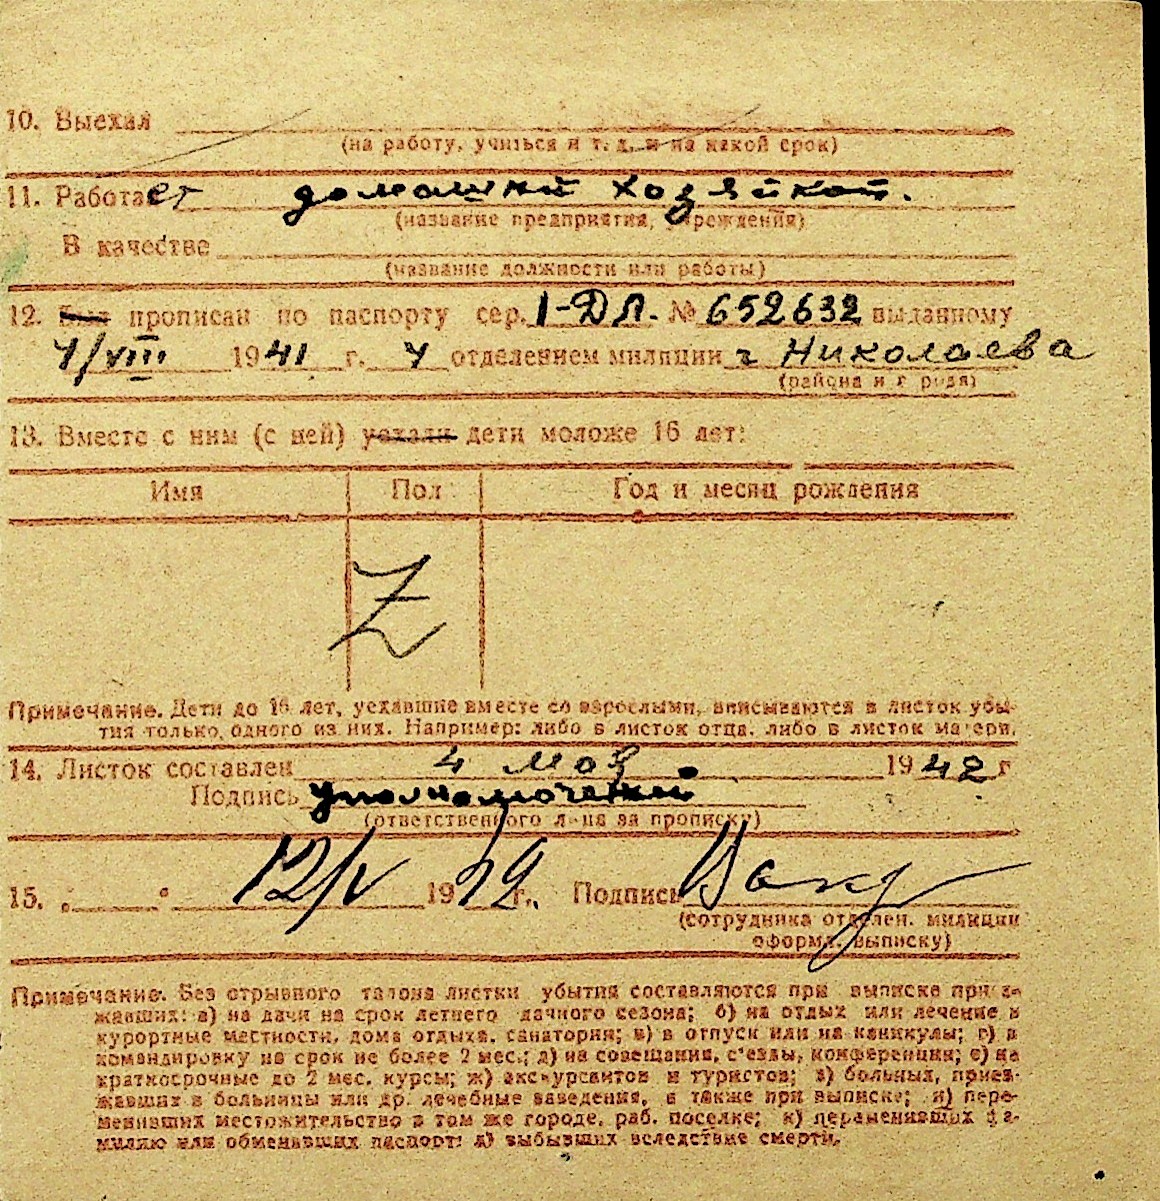 10. Выехал
(на работу, учиться и т. д. и на какой срок)
11. Работает домашней хозяйкой.
(название предприятия, учреждения)
В качестве
(название должности или работы)
12. Был прописан по паспорту сер. I-ДЛ. № 652632 выданному
4/VIII 1941 г. 4 отделением милиции г Николаева
(района и г рода)
13. Вместе с ним (с ней) уехали дети моложе 16 лет:
Имя Пол Год и месяц рождения
Z
Примечание. Дети до 16 лет, уехавшие вместе со взрослыми, вписываются в листок убы-
тия только одного из них. Например: либо в листок отца, либо в листок матери.
14. Листок составлен 4 мая 1942 г
Подпись уполномоченный
(ответственного лица за прописку)
15. 12/V 1942 г. Подпись
(сотрудника отделен. милиции
оформ. выписку)
Примечание. Без отрывного талона листки убытия составляются при выписке приез-
жавших: а) на дачи на срок летнего дачного сезона; б) на отдых или лечение в
курортные местности, дома отдыха, санатория; в) в отпуск или на каникулы; г) в
командировку на срок не более 2 мес.; д) на совещания, с'езды, конференции; е) на
краткосрочные до 2 мес. курсы; ж) экскурсантов и туристов; з) больных, приез-
жавших в больницы или др. лечебные заведения, а также при выписке; и) пере-
менивших местожительство в том же городе, раб. поселке; к) переменивших фа-
милию или обменявших паспорт; л) выбывших вследствие смерти.